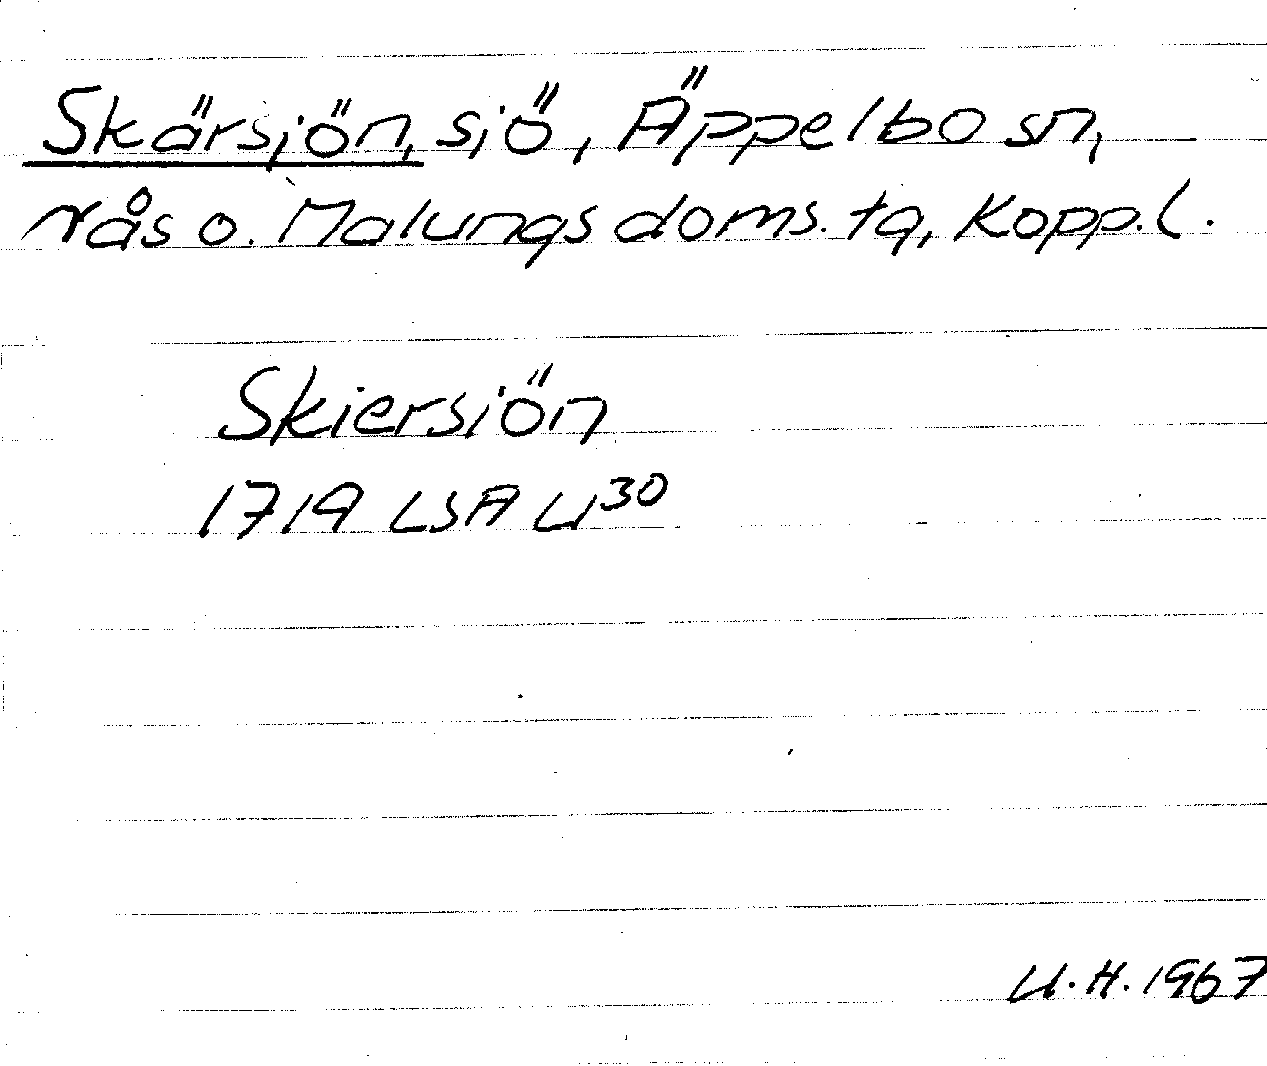 Skärsjön, sjö, Äppelbo sn,
Nås o. Malungs doms. tg, Kopp. l.
Skiersiön
1719 LSA U³⁰
U.H. 1967